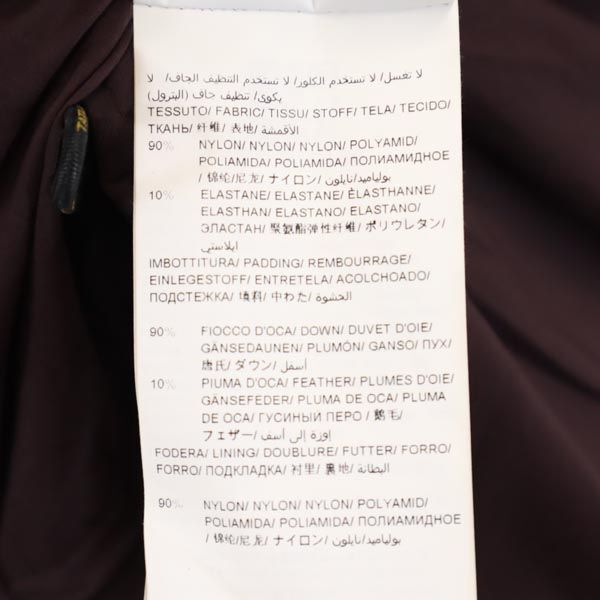 لا تغسل/ لا تستخدم الكلور/ لا تستخدم التنظيف الجاف/ لا
يكوى/ تنظيف جاف (البترول)
TESSUTO/ FABRIC/ TISSU/ STOFF/ TELA/ TECIDO/
ТКАНЬ/ 纤维/ 表地/ الأقمشة
90% NYLON/ NYLON/ NYLON/ POLYAMID/
POLIAMIDA/ POLIAMIDA/ ПОЛИАМИДНОЕ
/ 锦纶/尼龙/ ナイロン/ بولياميد/نايلون
10% ELASTANE/ ELASTANE/ ÉLASTHANNE/
ELASTHAN/ ELASTANO/ ELASTANO/
ЭЛАСТАН/ 聚氨酯弹性纤维/ ポリウレタン/
ايلاستي
IMBOTTITURA/ PADDING/ REMBOURRAGE/
EINLEGESTOFF/ ENTRETELA/ ACOLCHOADO/
ПОДСТЕЖКА/ 填料/ 中わた/ الحشوة
90% FIOCCO D'OCA/ DOWN/ DUVET D'OIE/
GÄNSEDAUNEN/ PLUMÓN/ GANSO/ ПУХ/
唐氏/ ダウン/ أسفل
10% PIUMA D'OCA/ FEATHER/ PLUMES D'OIE/
GÄNSEFEDER/ PLUMA DE OCA/ PLUMA
DE OCA/ ГУСИНЫЙ ПЕРО / 鹅毛/
フェザー/ إوزة إلى أسف
FODERA/ LINING/ DOUBLURE/ FUTTER/ FORRO/
FORRO/ ПОДКЛАДКА/ 衬里/ 裏地/ البطانة
90% NYLON/ NYLON/ NYLON/ POLYAMID/
POLIAMIDA/ POLIAMIDA/ ПОЛИАМИДНОЕ
/ 锦纶/尼龙/ ナイロン/ بولياميد/نايلون